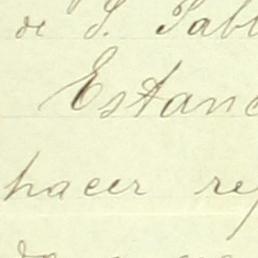 de S. Pabl
Estanc
hacer rep